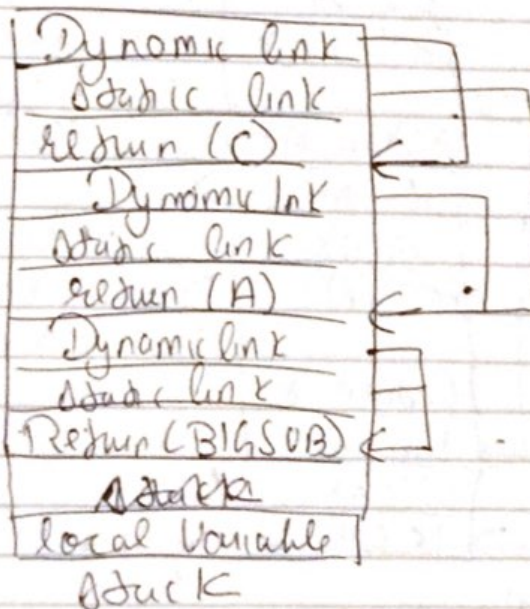 Dynamic link
static link
return (C)
Dynamic link
static link
return (A)
Dynamic link
static link
Return (BIGSUB)
local variable
stack